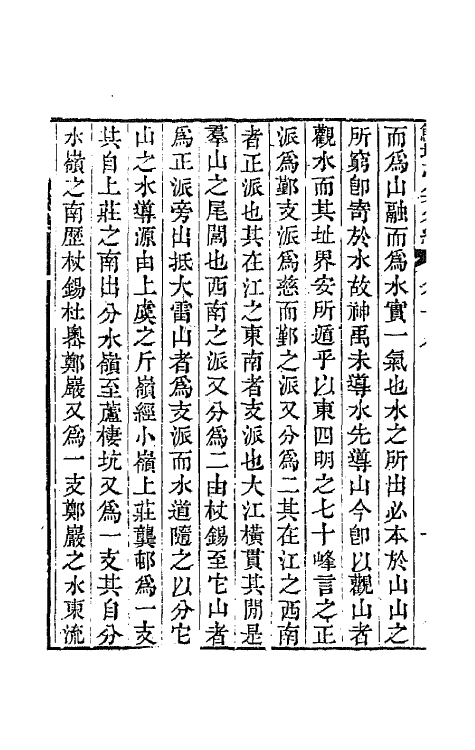 而爲山融而爲水實一氣也水之所出必本於山山之
所窮卽寄於水故神禹未導水先導山今卽以觀山者
觀水而其址界安所遁乎以東四明之七十峰言之正
派爲鄞支派爲慈而鄞之派又分爲二其在江之西南
者正派也其在江之東南者支派也大江橫貫其閒是
羣山之尾閭也西南之派又分爲二由杖錫至它山者
爲正派旁出抵大雷山者爲支派而水道隨之以分它
山之水導源由上虞之斤嶺經小嶺上莊龔邨爲一支
其自上莊之南出分水嶺至蘆棲坑又爲一支其自分
水嶺之南歷杖錫杜嶴鄭巖又爲一支鄭巖之水東流